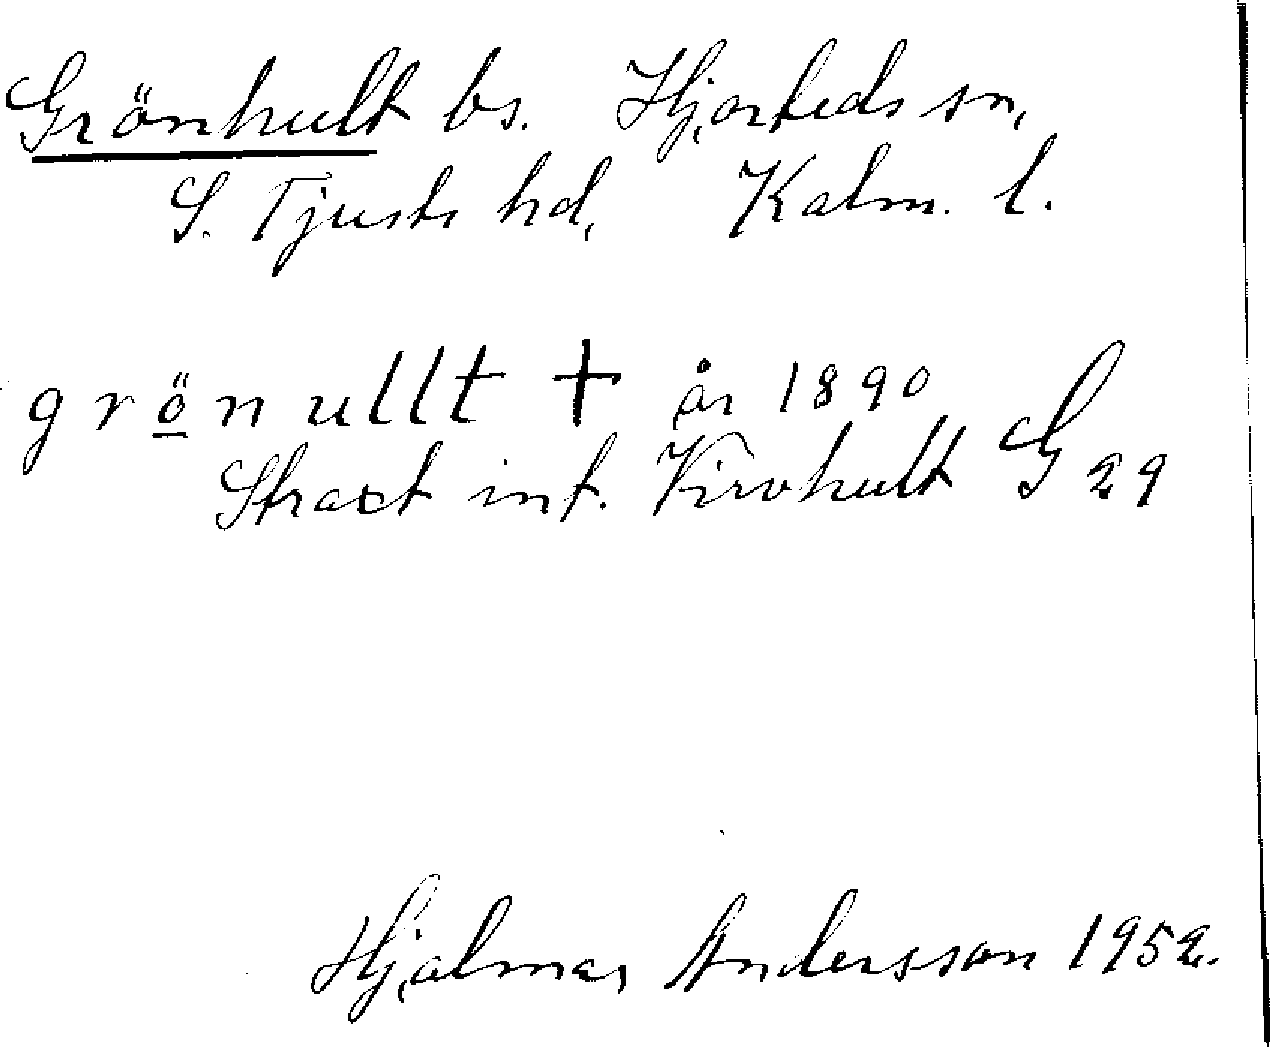 Grönhult bs. Hjorteds sn,
S. Tjusts hd, Kalm. l.
grönullt + år 1890
Straxt int. Virohult G 29
Hjalmar Andersson 1952.